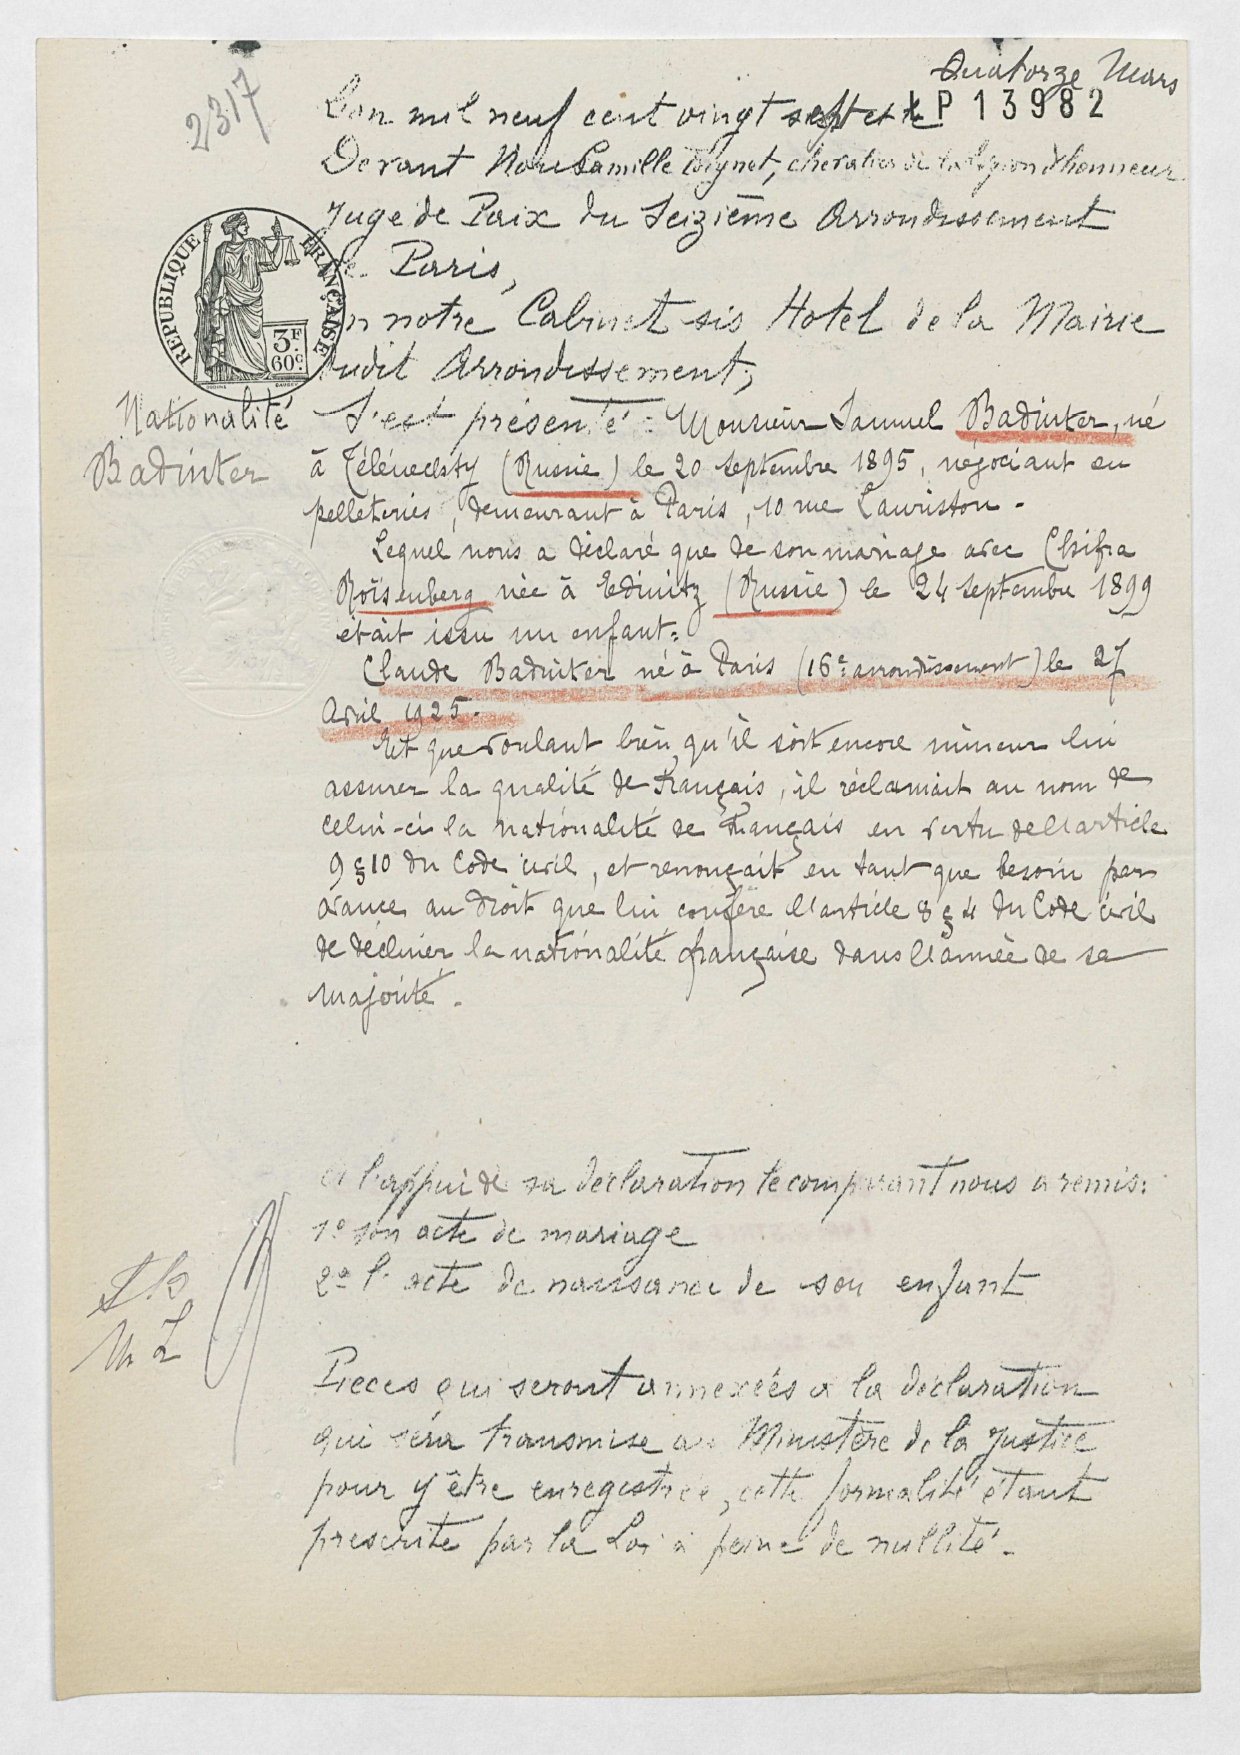 2317
Quatorze Mars
L'an mil neuf cent vingt sept et le
LP 13982
Devant Nous Camille Coignet, chevalier de la légion d'honneur
Juge de Paix du Seizième Arrondissement
de Paris,
En notre Cabinet sis Hotel de la Mairie
dudit Arrondissement;
REPUBLIQUE FRANÇAISE
3F
60c
Nationalité
Badinter
S'est présenté : Monsieur Samuel Badinter, né
à Télénechty (Russie) le 20 septembre 1895, négociant en
pelleteries, demeurant à Paris, 10 rue Lauriston.
Lequel nous a déclaré que de son mariage avec Chifra
Roïsenberg née à Edinitz (Russie) le 24 septembre 1899
était issu un enfant:
Claude Badinter né à Paris (16e arrondissement) le 27
Avril 1925.
Et que voulant bien qu'il soit encore mineur lui
assurer la qualité de Français, il réclamait au nom de
celui-ci la nationalité de Français en vertu de l'article
9 § 10 du Code civil, et renonçait en tant que besoin par
avance au droit que lui confère l'article 8 § 4 du Code civil
de décliner la nationalité française dans l'année de sa
majorité.
A l'appui de sa déclaration le comparant nous a remis:
1o son acte de mariage
2o l'acte de naissance de son enfant
Pièces qui seront annexées à la déclaration
qui sera transmise au Ministère de la Justice
pour y être enregistrée, cette formalité étant
prescrite par la Loi à peine de nullité.